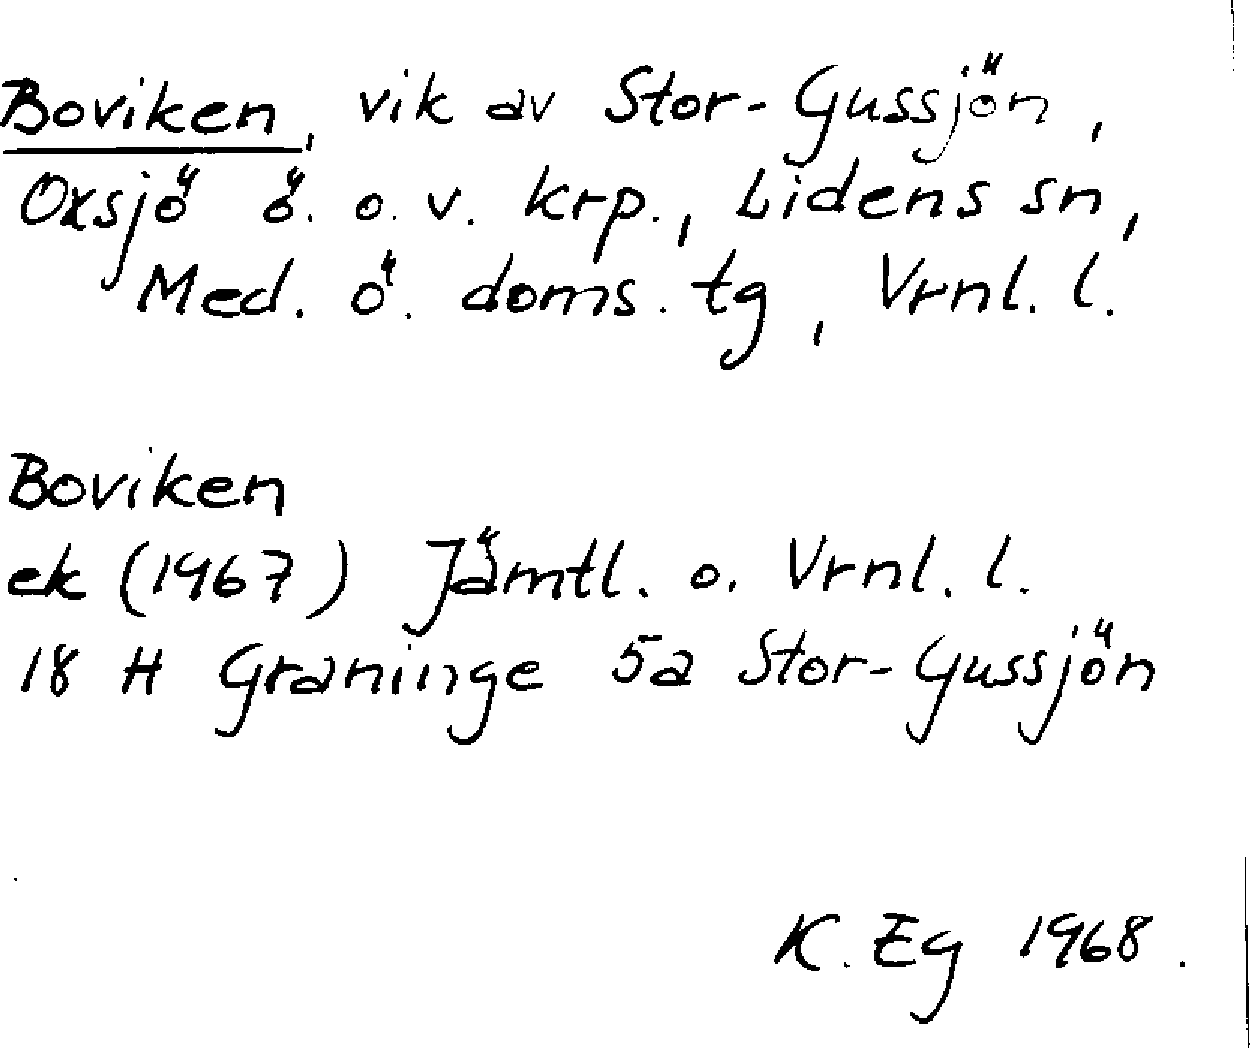 Boviken, vik av Stor-Gussjön,
Oxsjö ö. o. v. krp., Lidens sn,
Med. ö. doms. tg, Vrnl. l.
Boviken
ek (1967) Jämtl. o. Vrnl. l.
18 H Graninge 5a Stor-Gussjön
K. Eg 1968.